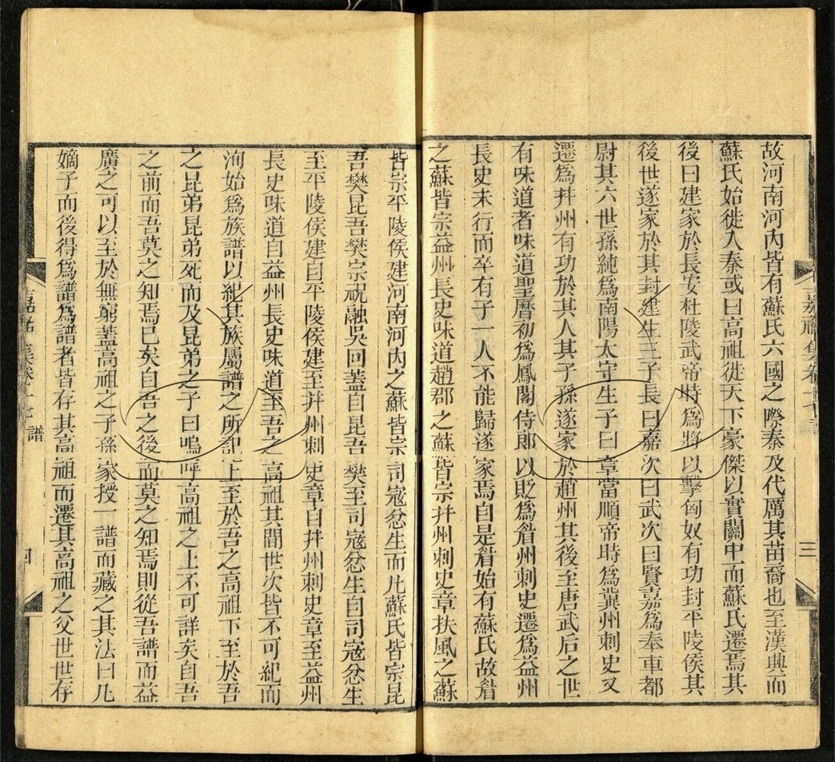 故河南河內皆有蘇氏六國之際秦及代厲其苗裔也至漢興而
蘇氏始徙入秦或曰高祖徙天下豪傑以實關中而蘇氏遷焉其
後曰建家於長安杜陵武帝時爲將以擊匈奴有功封平陵侯其
後世遂家於其封建生三子長曰嘉次曰武次曰賢嘉爲奉車都
尉其六世孫純爲南陽太守生子曰章當順帝時爲冀州刺史又
遷爲幷州有功於其人其子孫遂家於趙州其後至唐武后之世
有味道者味道聖曆初爲鳳閣侍郎以貶爲眉州刺史遷爲益州
長史未行而卒有子一人不能歸遂家焉自是眉始有蘇氏故眉
之蘇皆宗益州長史味道趙郡之蘇皆宗幷州刺史章扶風之蘇
皆宗平陵侯建河南河內之蘇皆宗司寇忿生而凡蘇氏皆宗昆
吾樊昆吾樊宗祝融吳回蓋自昆吾樊至司寇忿生自司寇忿生
至平陵侯建自平陵侯建至幷州刺史章自幷州刺史章至益州
長史味道自益州長史味道至吾之高祖其間世次皆不可紀而
洵始爲族譜以紀其族屬譜之所記上至於吾之高祖下至於吾
之昆弟昆弟死而及昆弟之子曰嗚呼高祖之上不可詳矣自吾
之前而吾莫之知焉已矣自吾之後而莫之知焉則從吾譜而益
廣之可以至於無窮蓋高祖之子孫家授一譜而藏之其法曰凡
嫡子而後得爲譜爲譜者皆存其高祖而遷其高祖之父世世存
嘉祐集卷十七 譜
三
四